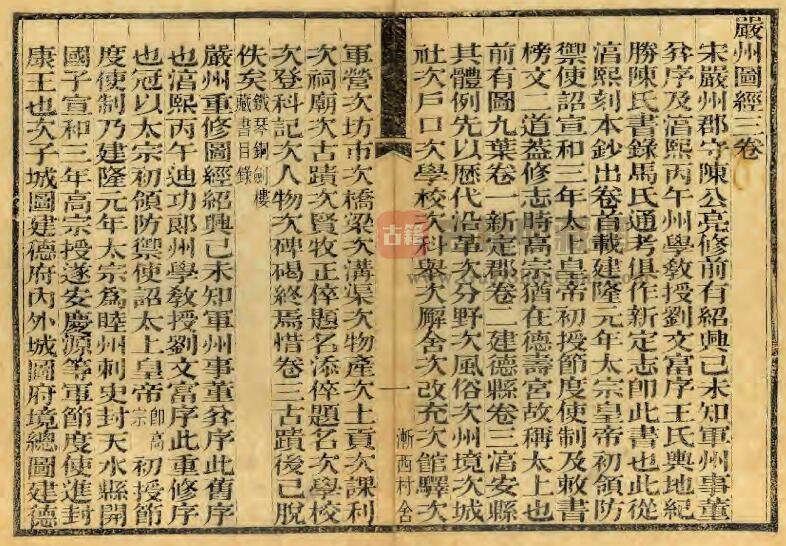 嚴州圖經三卷
宋嚴州郡守陳公亮修前有紹興己未知軍州事董
弅序及淳熙丙午州學教授劉文富序王氏輿地紀
勝陳氏書錄馬氏通考俱作新定志卽此書也此從
淳熙刻本鈔出卷首載建隆元年太宗皇帝初領防
禦使詔宣和三年太上皇帝初授節度使制及敕書
榜文二道蓋修志時高宗猶在德壽宮故稱太上也
前有圖九葉卷一新定郡卷二建德縣卷三淳安縣
其體例先以歷代沿革次分野次風俗次州境次城
社次戶口次學校次科舉次廨舍次改充次館驛次
浙西村舍
一
軍營次坊市次橋梁次溝渠次物產次土貢次課利
次祠廟次古蹟次賢牧正倅題名添倅題名次學校
次登科記次人物次碑碣終焉惜卷三古蹟後已脫
佚矣鐵琴銅劍樓藏書目錄
嚴州重修圖經紹興己未知軍州事董弅序此舊序
也淳熙丙午迪功郞州學敎授劉文富序此重修序
也冠以太宗初領防禦使詔太上皇帝卽高宗初授節
度使制乃建隆元年太宗爲睦州刺史封天水縣開
國子宣和三年高宗授遂安慶源等軍節度使進封
康王也次子城圖建德府內外城圖府境總圖建德
古籍